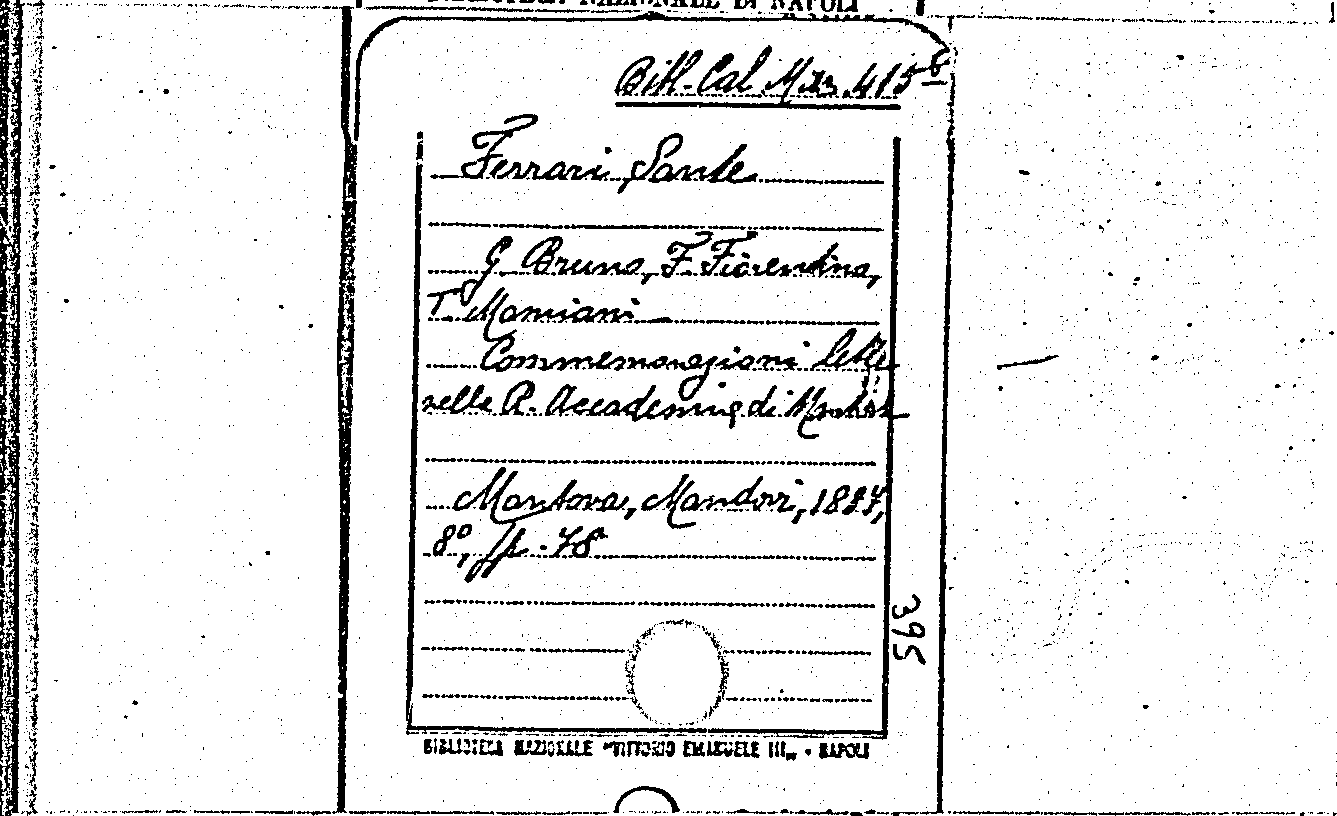 NAZIONALE DI NAPOLI
Bibl. Cal Misc. 415 6
Ferrari, Sante
G Bruno, F. Fiorentino,
T. Mamiani
Commemorazioni lette
nelle R. Accademia di
Mantova, Mondovi, 1887,
8°, pp. 78
395
BIBLIOTECA NAZIONALE "VITTORIO EMANUELE III„ - NAPOLI